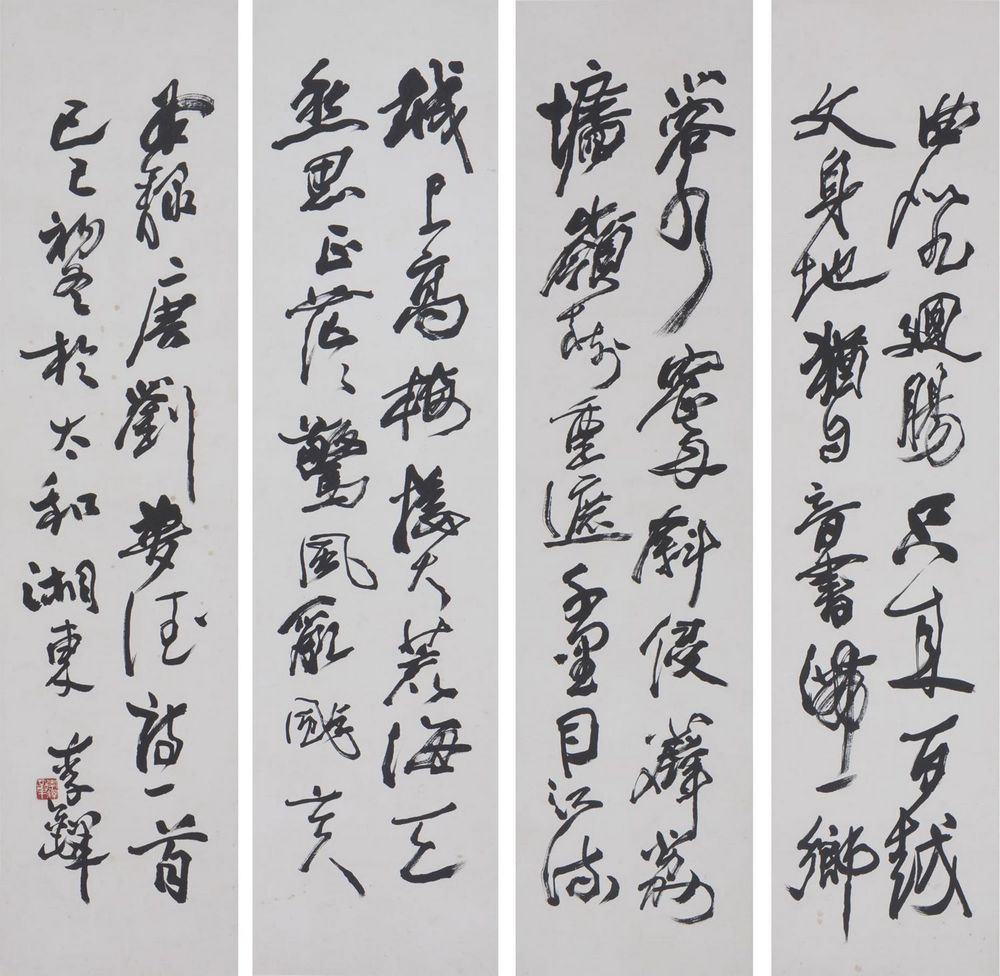 城上高樓接大荒海天
愁思正茫々驚風亂颭芙
蓉水密雨斜侵薜荔
墻嶺樹重遮千里目江流
曲似九迴腸共來百越
文身地猶自音書滯一鄉
右錄唐劉夢得詩一首
己巳初冬於太和湘東 李鐸